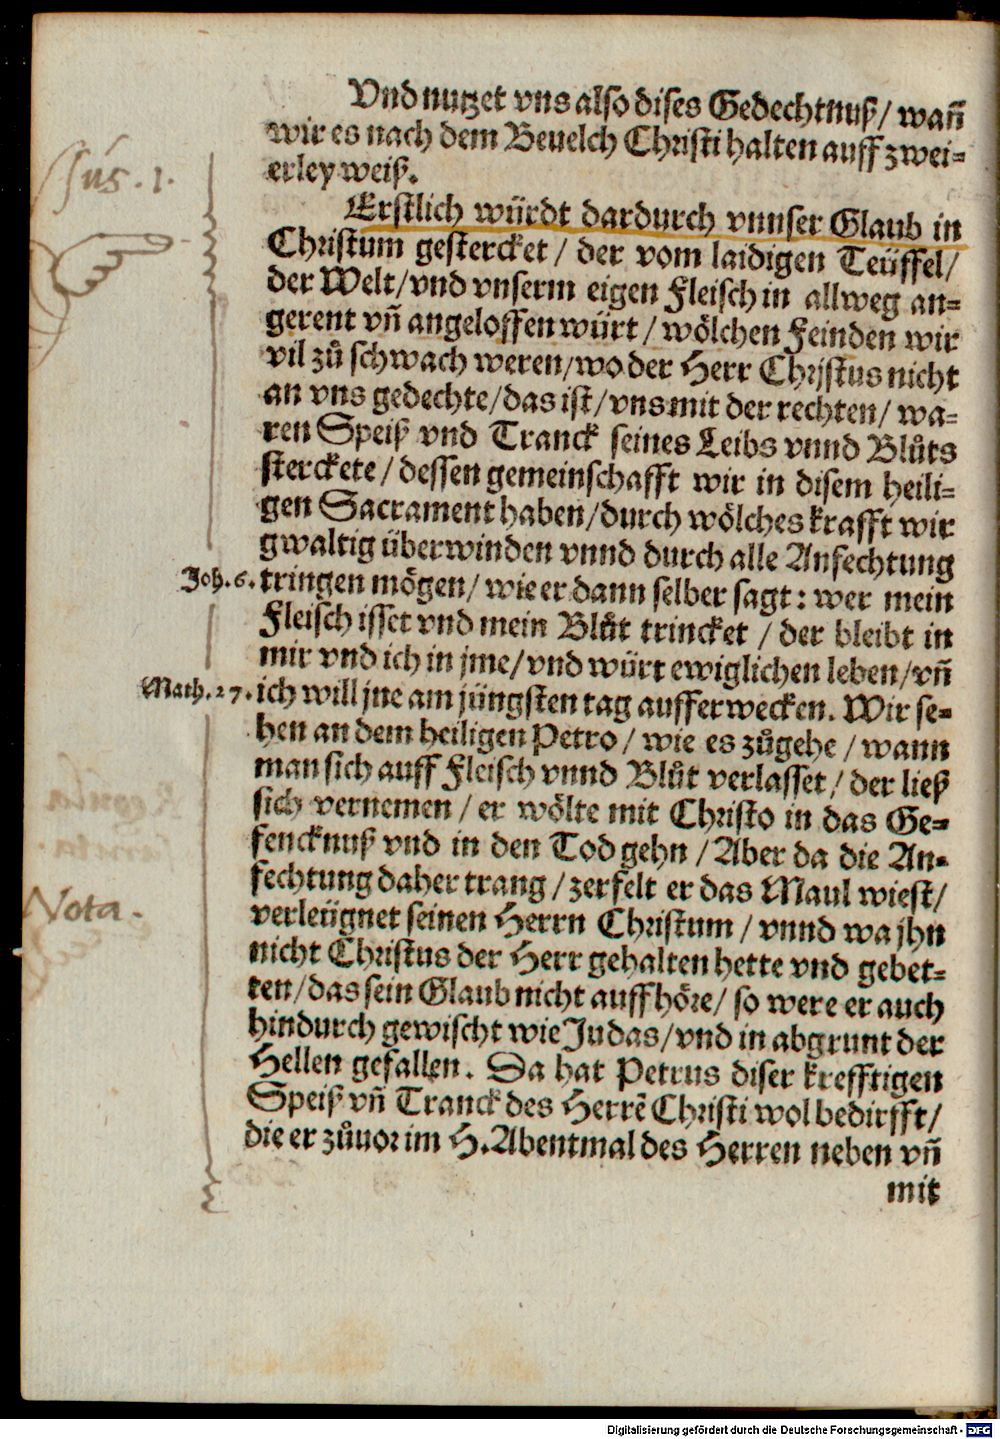 Vnd nutzet vns also dises Gedechtnuß/ wañ
wir es nach dem Beuelch Christi halten auff zwei-
erley weiß.
Usus. 1.
Erstlich würdt dardurch vnnser Glaub in
Christum gestercket / der vom laidigen Teüffel/
der Welt/vnd vnserm eigen Fleisch in allweg an-
gerent vñ angeloffen würt / wölchen Feinden wir
vil zů schwach weren/wo der Herr Chrjstus nicht
an vns gedechte/das ist/vns mit der rechten/ wa-
ren Speiß vnd Tranck seines Leibs vnnd Blůts
sterckete / dessen gemeinschafft wir in disem heili-
gen Sacrament haben/durch wölches krafft wir
gwaltig überwinden vnnd durch alle Anfechtung
Joh. 6. tringen mögen/ wie er dann selber sagt: wer mein
Fleisch isset vnd mein Blůt trincket / der bleibt in
mir vnd ich in jme/vnd würt ewiglichen leben/vñ
Math. 27. ich will jne am jüngsten tag aufferwecken. Wir se-
hen an dem heiligen Petro / wie es zůgehe / wann
man sich auff Fleisch vnnd Blůt verlasset / der ließ
sich vernemen / er wölte mit Christo in das Ge-
fencknuß vnd in den Tod gehn / Aber da die An-
fechtung daher trang / zerfelt er das Maul wiest/
Nota.
verleügnet seinen Herrn Christum / vnnd wa jhn
nicht Christus der Herr gehalten hette vnd gebet-
ten/das sein Glaub nicht auffhöre/ so were er auch
hindurch gewischt wie Judas/vnd in abgrunt der
Hellen gefallen. Da hat Petrus diser krefftigen
Speiß vñ Tranck des Herrẽ Christi wol bedirfft/
die er zůuor im H. Abentmal des Herren neben vñ
mit
Digitalisierung gefördert durch die Deutsche Forschungsgemeinschaft - DFG